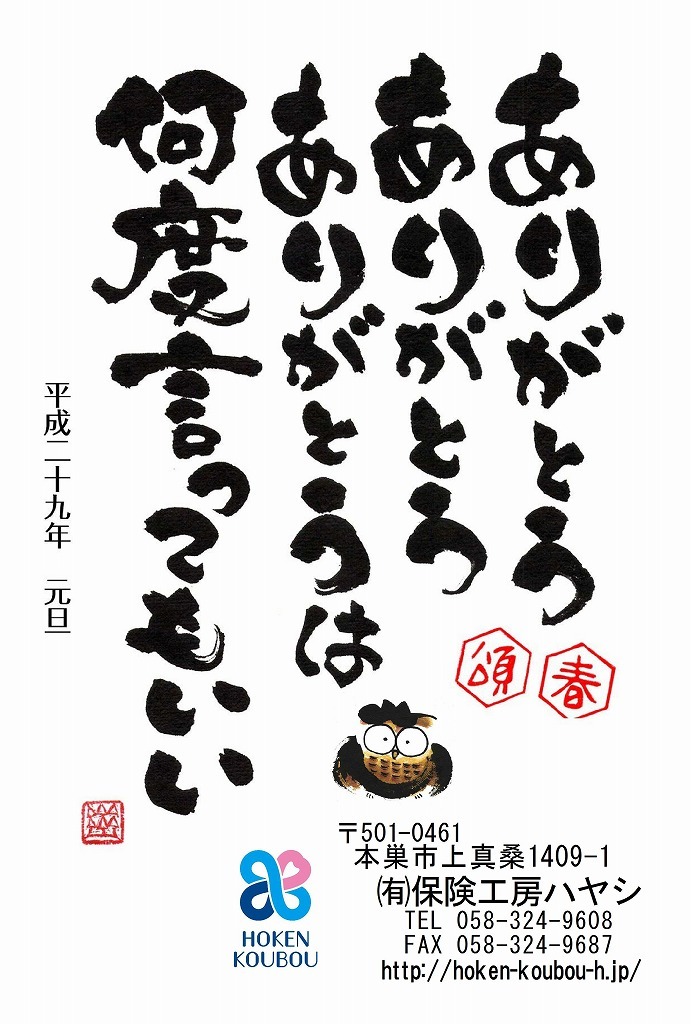 ありがとう
ありがとう
ありがとうは
何度言ってもいい
頌春
平成二十九年 元旦
〒501-0461
本巣市上真桑1409-1
㈲保険工房ハヤシ
TEL 058-324-9608
FAX 058-324-9687
http://hoken-koubou-h.jp/
HOKEN
KOUBOU